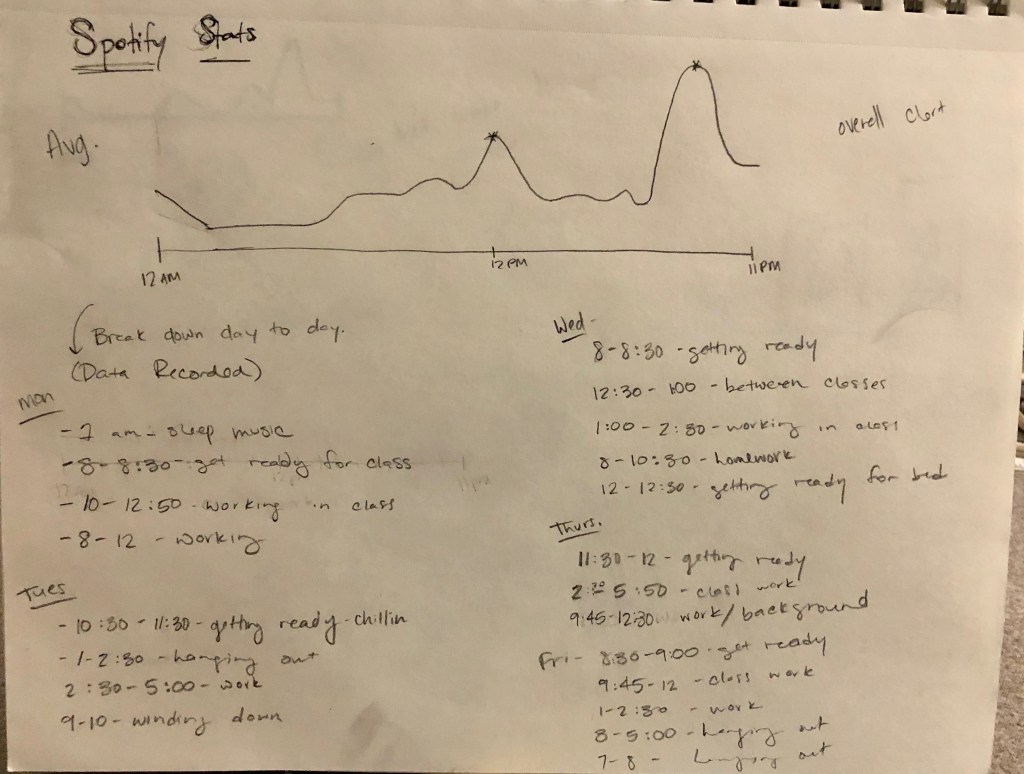 Spotify Stats
Avg.
overall chart
12 AM
12 PM
11 PM
Break down day to day.
(Data Recorded)
Mon
- 7 am - sleep music
- 8 - 8:30 - get ready for class
- 10 - 12:50 - working in class
- 8 - 12 - working
Tues
- 10:30 - 11:30 - getting ready - chillin
- 1 - 2:30 - hanging out
2:30 - 5:00 - work
9-10 - winding down
Wed -
8 - 8:30 - getting ready
12:30 - 1:00 - between classes
1:00 - 2:30 - working in class
8 - 10:30 - homework
12 - 12:30 - getting ready for bed
Thurs.
11:30 - 12 - getting ready
2:30 5:50 - class work
9:45-12:30 work/background
Fri - 8:30-9:00 - get ready
9:45-12 - class work
1-2:30 - work
3-5:00 - hanging out
7-8 - hanging out